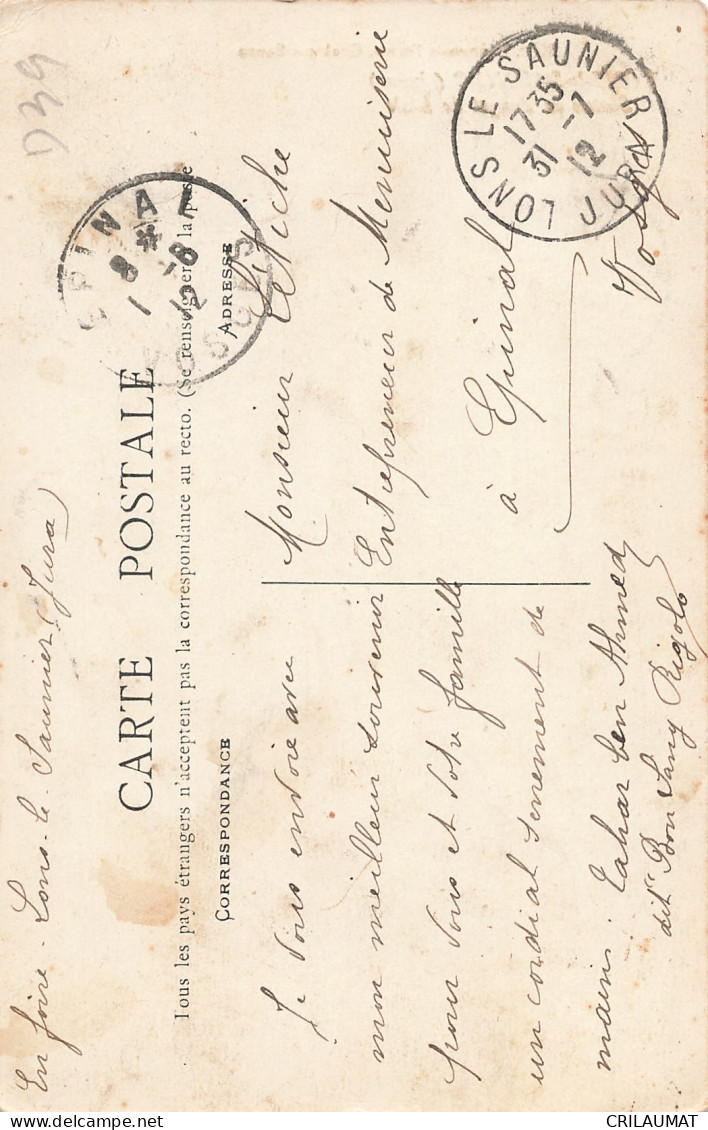 D39
En foire - Lons-le-Saunier (Jura)
CARTE POSTALE
Tous les pays étrangers n'acceptent pas la correspondance au recto. (Se renseigner à la poste
CORRESPONDANCE
Je vous envoie avec
mon meilleur souvenir
pour vous et votre famille
un cordial serrement de
mains. Tahar ben Ahmed
dit Bon Sang Rigolo
ADRESSE
Monsieur
Entrepreneur de Menuiserie
à Epinal
Vosges
EPINAL
8 * 
1 -8
12
VOSGES
LONS LE SAUNIER
17 35
31 -7
12
JURA
CRILAUMAT